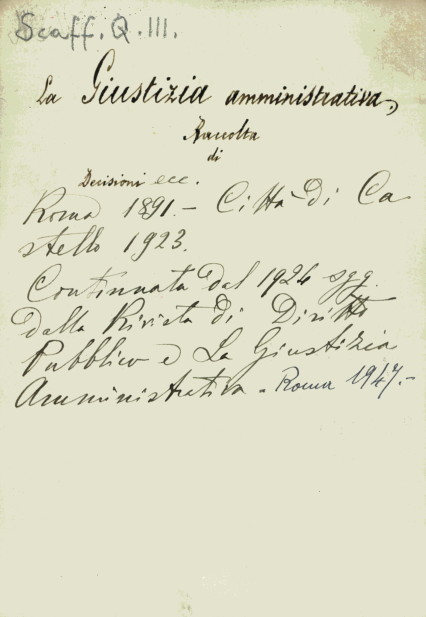 Scaff. Q. III.
La Giustizia amministrativa,
Raccolta
di
Decisioni ecc.
Roma 1891. - Città di Ca
stello 1923.
Continuata dal 1924 sgg.
dalla Rivista di Diritto
Pubblico e La Giustizia
Amministrativa - Roma 1947. -